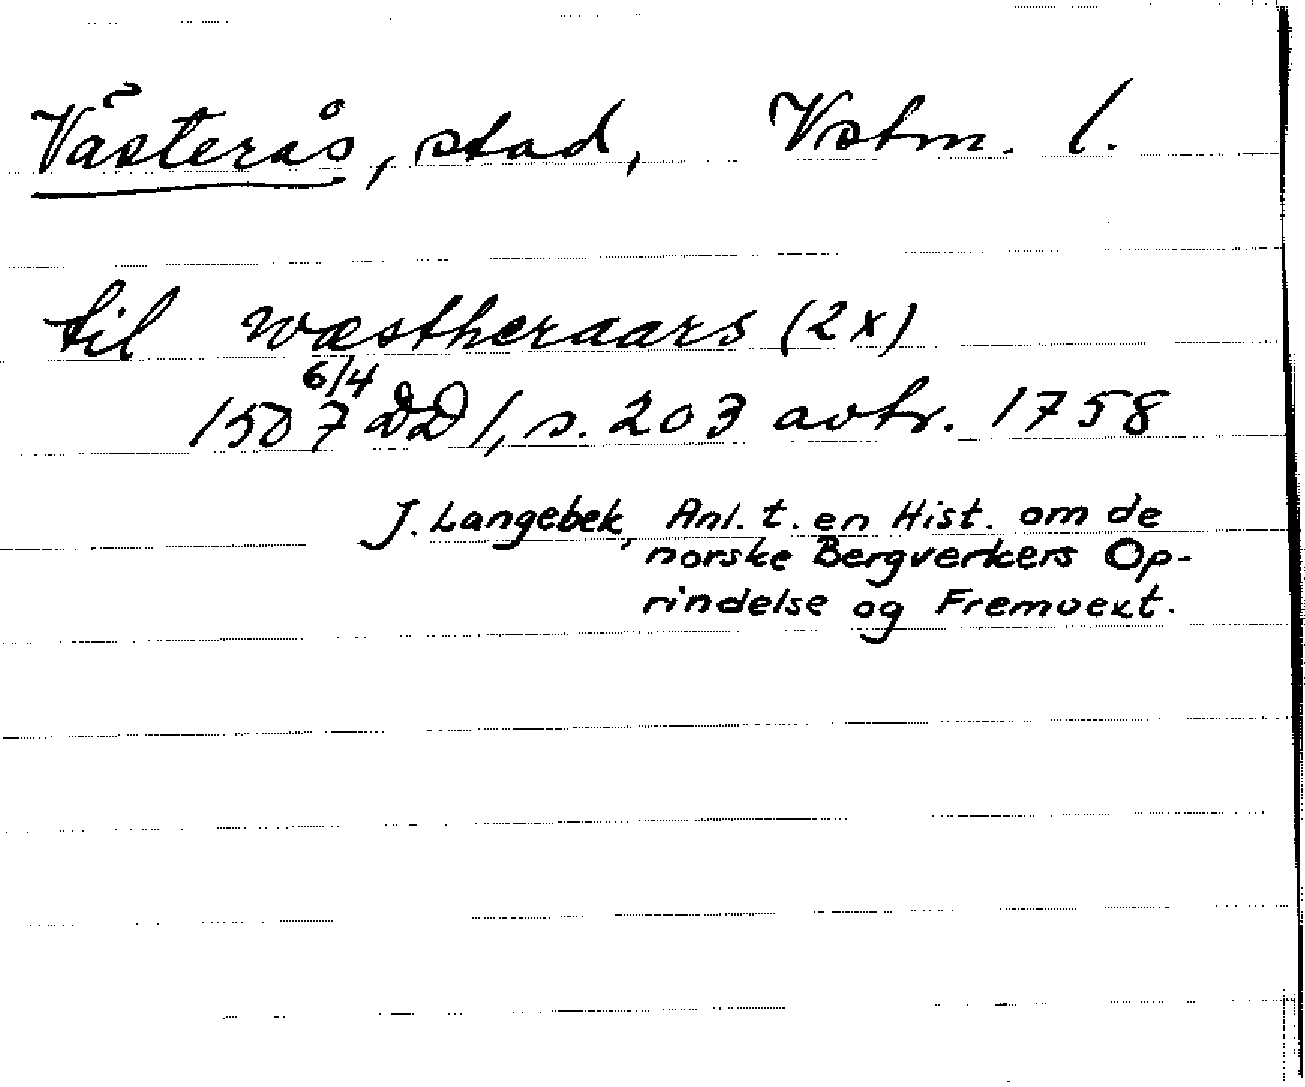 Västerås, stad, Vstm. l.
til wæstheraars (2x)
6/4
1507 DD 1, s. 203 avtr. 1758
J. Langebek, Anl. t. en Hist. om de
norske Bergverkers Op-
rindelse og Fremvext.